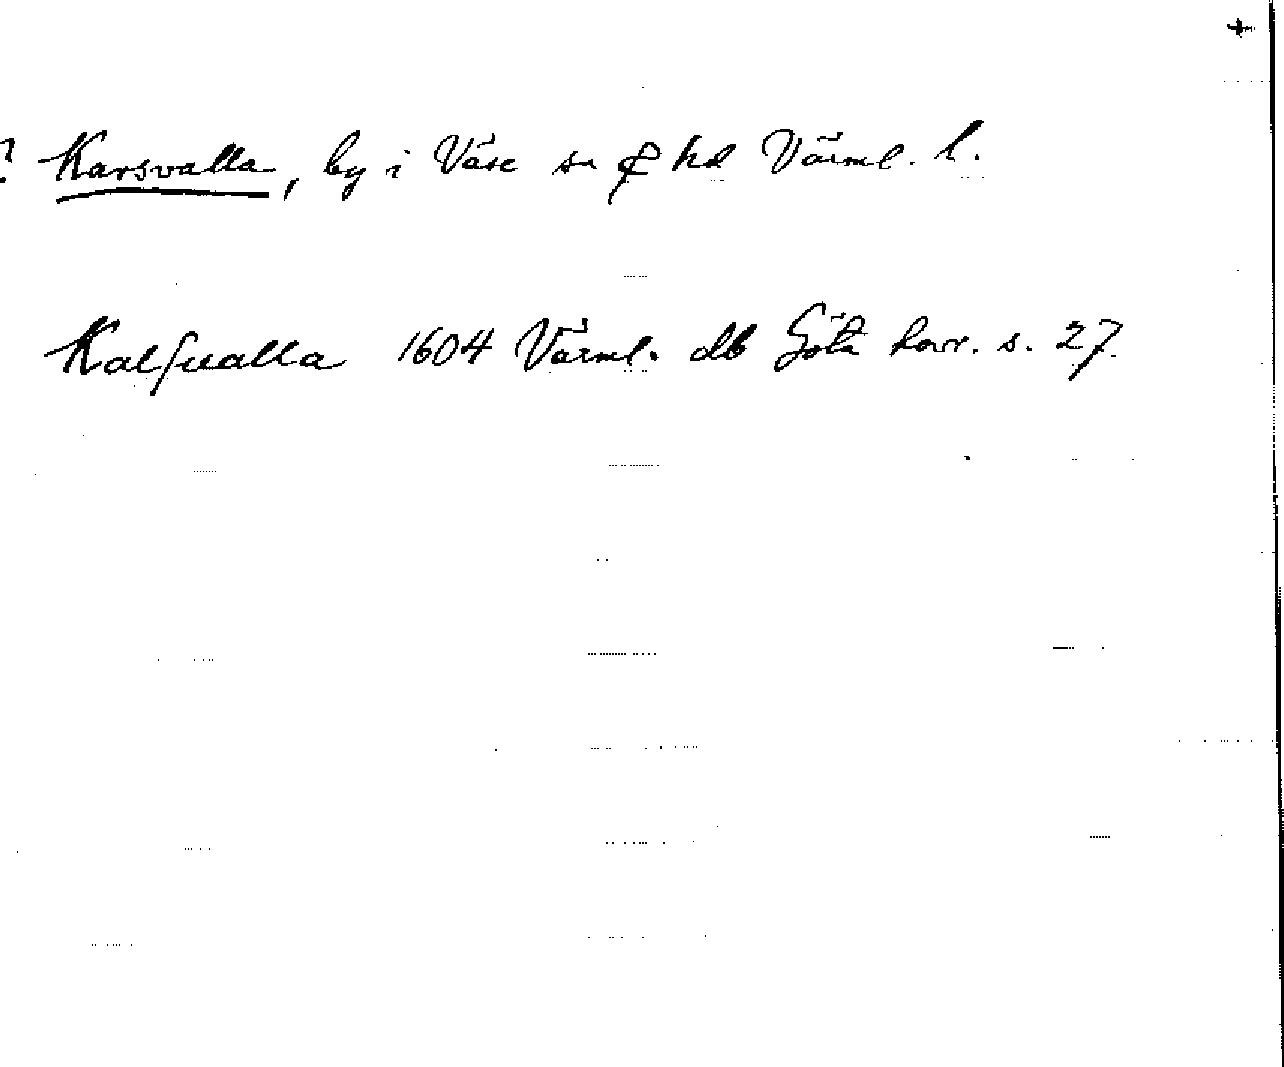 ? Karsvalla, by i Väse sn & hd Värml. l.
Kalfualla 1604 Värml. db Göta hovr. s. 27.